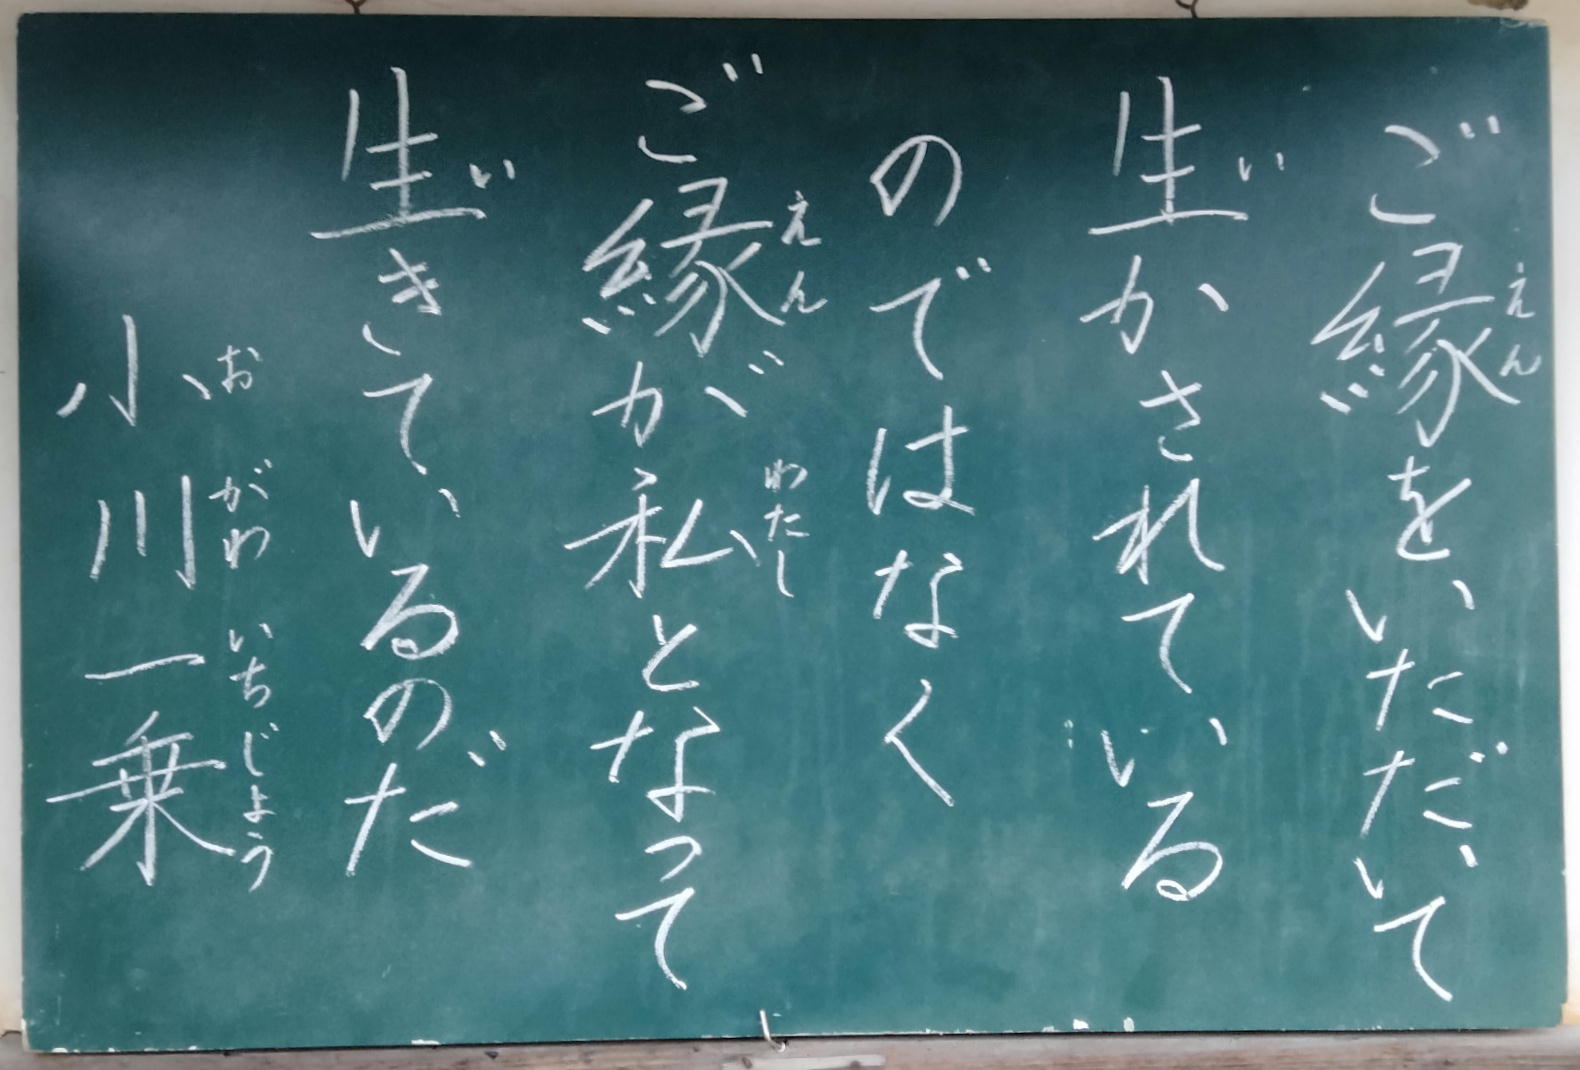 ご縁をいただいて
生かされている
のではなく
ご縁が私となって
生きているのだ
小川一乗
えん
い
えん
わたし
い
おがわ いちじょう